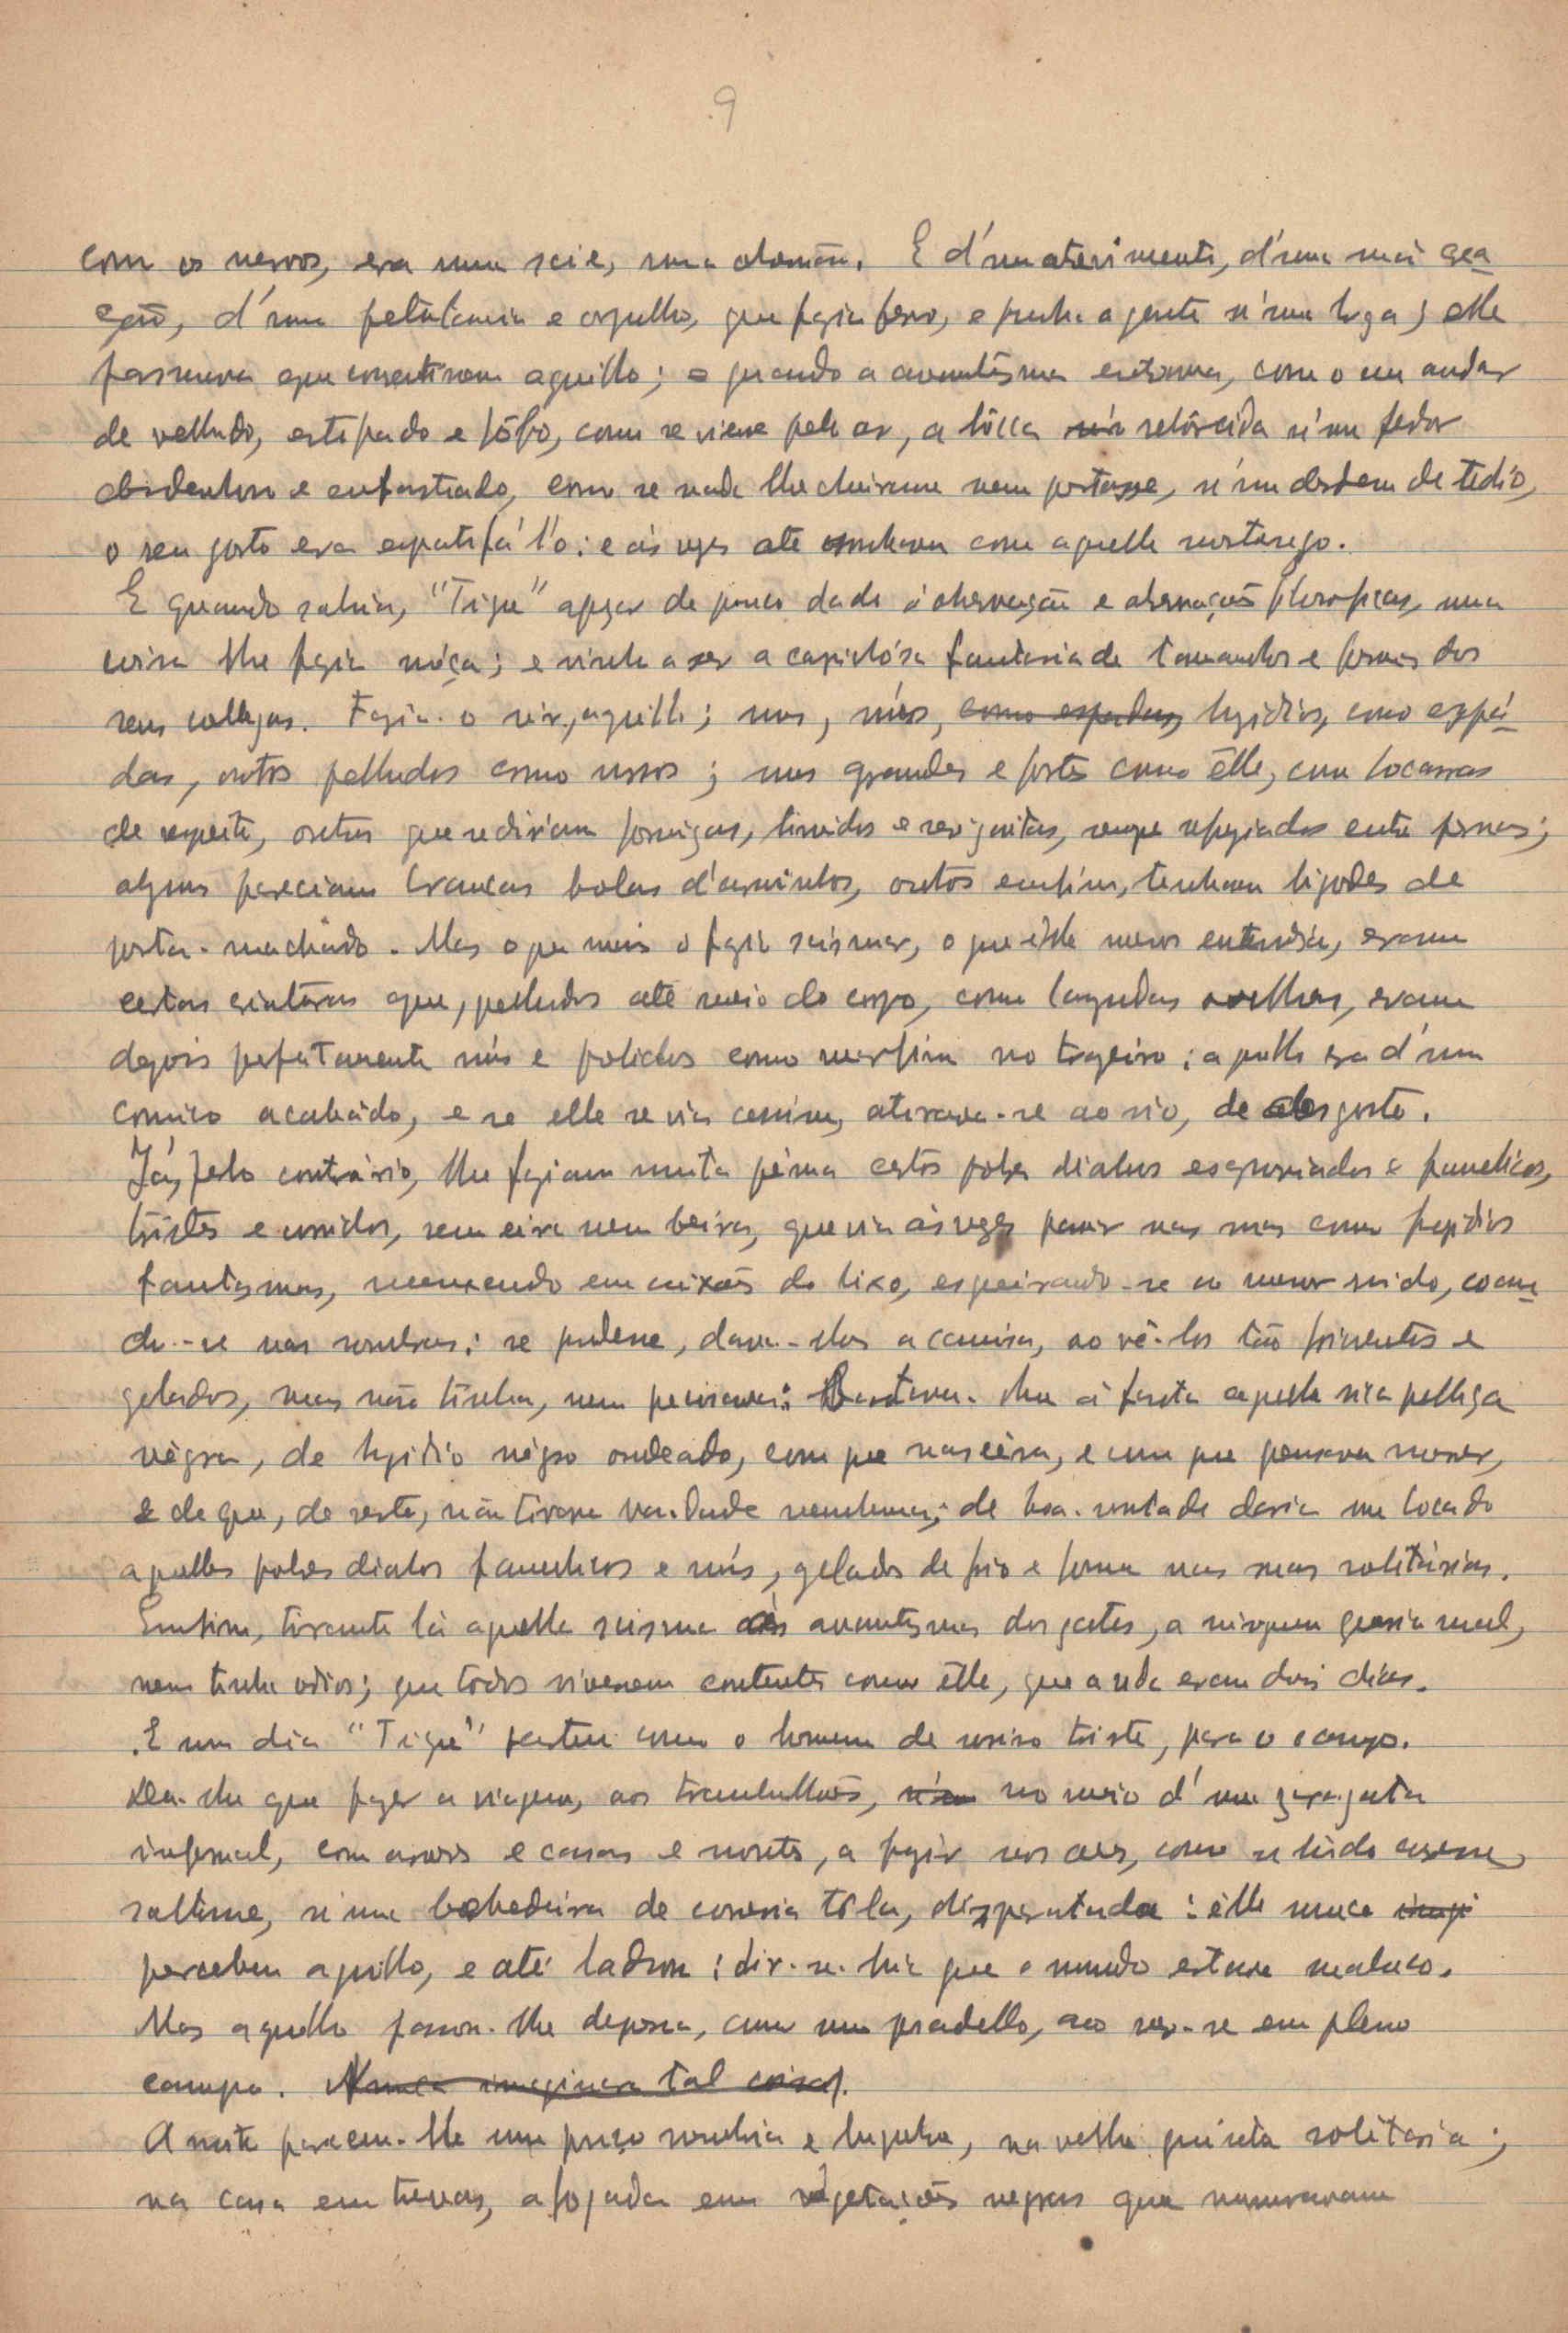 9
com os nervos, era uma scie, uma. E d'um atrevimento, d'uma má
d'uma petulancia e orgulho, que fazia ferro, e punha a gente n'uma braza; elle
pasmava que consentissem aquillo; e quando a avantesma entrava, com o seu andar
de velludo, estopado e fôfo, como se viesse pelo ar, a bôcca retorcida n'um
e enfastiado, como se nada lhe cheirasse nem gostasse, n'um desdem de tedio,
o seu gosto era espatifá-l'o: e ás vezes até sonhava com aquelle mostrengo.
E quando sahia, "Tigre" apezar de pouco dado á observação e observações philosophicas, uma
coisa lhe fazia móça; e vinha a ser a caprichósa fantasia de tamanhos e formas dos
seus collegas. Fazia-o rir, aquillo; uns, nús, como espadas, luzidios, como espá-
das, outros pelludos como ursos; uns grandes e fortes como êlle, com bocarras
de respeito, outros que se diriam formigas, timidos e sempre refugiados entre pernas;
alguns pareciam brancas bolas d'arminhos, outros emfim, tinham bigodes de
porta-machado. Mas o que mais o fazia scismar, o que êlle menos entendia, eram
certas criaturas que, pelludos até meio do corpo, como lanzudas ovelhas, eram
depois perfeitamente nús e polidos como marfim no trazeiro; aquillo era d'um
comico acabado, e se elle se via assim, atirava-se ao rio, de desgosto.
Já, pelo contrário, lhe faziam muita pêna certos pobres diabos esgrouviados e famelicos,
tristes e corridos, sem eira nem beira, que via ás vezes passar nas ruas como fugidios
fantasmas, remexendo em caixões do lixo, esgueirando-se ao menor ruido,
do-se nas sombras: se pudesse, dava-lhes a camisa, ao vê-los tão friorentos e
gelados, mas não tinha, nem precisava: Bastava-lhe á farta aquella rica pelliça
négra, de luzidio négro ondeado, com que nascêra, e com que pensava morrer,
e de que, de resto, não tirava vaidade nenhuma; de boa-vontade daria um bocado
aquelles pobres diabos famelicos e nús, gelados de frio e fome nas ruas solitárias.
Emfim, tirante lá aquella scisma ás avantesmas dos gatos, a ninguem queria mal,
nem tinha odios; que todos vivessem contentes como êlle, que a vida eram dois dias.
E um dia "Tigre" partiu com o homem de sorriso triste, para o campo.
Deu-lhe que fazer a viagem, aos trambulhões, n'um no meio d'uma zaragata
infernal, com arvores e casas e montes, a fugir nos ares, como se tudo
saltasse, n'uma bebedeira de correria tôla, disparatada: êlle nunca
percebeu aquillo, e até ladrou: dir-se-hia que o mundo estava maluco.
Mas aquillo passou-lhe depressa, como um pesadello, ao ver-se em pleno
campo. Nunca imaginara tal coisa.
A noite pareceu-lhe um pouco sombria e lugubre, na velha quinta solitaria;
na casa em trevas, afogada em vegetações negras que murmuravam